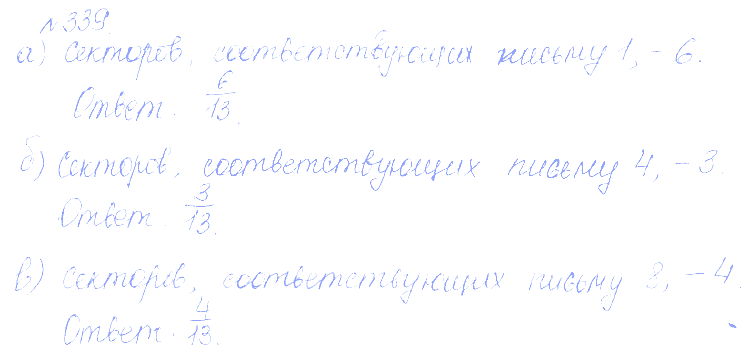 №339.
а) Секторов, соответствующих письму 1, - 6.
Ответ. 6/13.
б) Секторов, соответствующих письму 4, - 3.
Ответ. 3/13.
в) Секторов, соответствующих письму 8, - 4.
Ответ. 4/13.